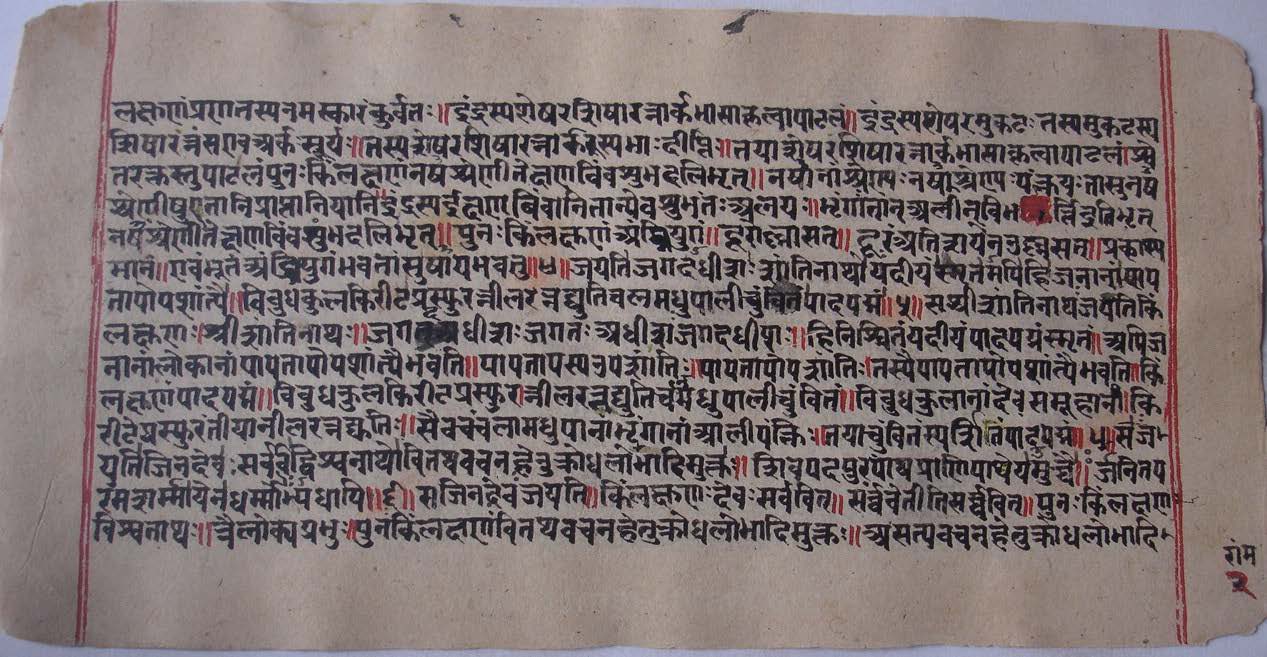 लक्षणं प्रणतस्य नमस्कारं कुर्वतः॥ इंद्रस्य शेषरशिषारत्नार्कभासाकृत्वा पाटलं॥ इंद्रस्य शेषरमुकटः तस्य मुकटस्य
शिषारत्नं स एव अर्क सूर्यः॥ तस्य शेषरशिषारत्नार्कस्य भाः दीप्तिः॥ तया शेषरशिषारत्नार्कभासाकृत्वा पाटलं
पुनः किंलक्षणं नषश्रेणीतेक्षणबिंबशुंभदलिभृत्॥
श्रेणीषु अलयः॥ भृंगांतान् अलीन् बिभ
नषश्रेणीतेक्षणबिंबशुंभदलिभृत्॥ पुनः किंलक्षणं अंह्रियुगं॥ दूरोल्लसत्॥ दूरं अतिशयेन उल्लसत्॥
मानं॥ एवंभूतं अंह्रियुगं भवतां सुषाय भवतु॥४॥ जयति जगदधीशः शांतिनाथो यदीयं स्मृतमपि हि जनानां पाप
तापोपशांत्यै॥ विबुधकुलकिरीटप्रस्फुरन्नीलरत्नद्युतिचलमधुपालीचुंबितं पादपद्मं॥५॥ स श्रीशांतिनाथ जयति किं
लक्षणः श्रीशांतिनाथः॥ जगदधीशः जगतः अधीश जगदधीशः॥ हि निश्चितं यदीयं पादपद्मं स्मृतं॥ अपि ज
नानां लोकानां पापतापोपशांत्यै भवति॥ पापतापस्य उपशांतिः पापतापोपशांतिः॥ तस्यै पापतापोपशांत्यै भवति॥ किं
लक्षणं पादपद्मं॥ विबुधकुलकिरीटप्रस्फुरन्नीलरत्नद्युतिचलमधुपालीचुंबितं॥ विबुधकुलानां देवसमूहानां॥ कि
रीटप्रस्फुरंती या नीलरत्नद्युतिः॥ सैव चंचला मधुपानां भृंगानां आली पंक्तिः॥ तया चुंबितं पादपद्मं॥५॥ स ज
यति जिनदेवः सर्वविद्विश्वनाथो वितथवचनहेतुक्रोधलोभादिमुक्तः॥ शिवपदपुरपांथप्राणिपाथेयमुच्चै जनितप
रमशर्मा येन धर्मोभ्यधायि॥६॥ स जिनदेव जयति॥ किंलक्षणः देवः सर्ववित्॥ सर्व्वं वेतीति सर्व्ववित्॥ पुनः किंलक्षणः
विश्वनाथः॥ त्रैलोक्यप्रभुः॥ पुनः किंलक्षणः वितथवचनहेतुक्रोधलोभादिमुक्तः॥ असत्यवचनहेतुक्रोधलोभादि
राम
२